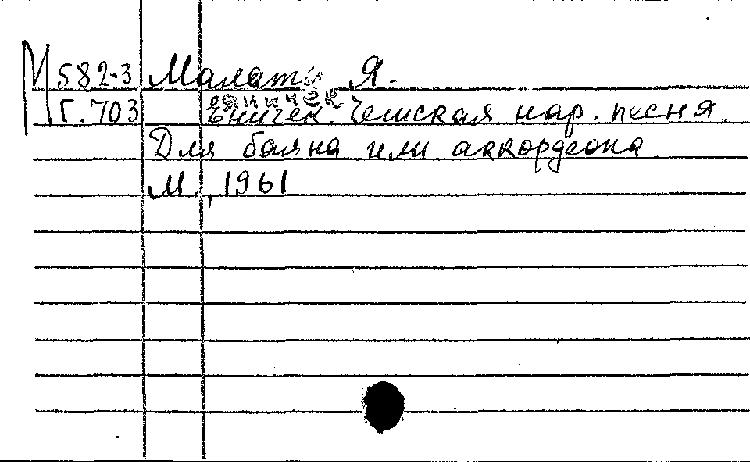 М 582-3 Малат Я.
Г. 703 Еничек. Чешская нар. песня.
Для баяна или аккордеона
М., 1961